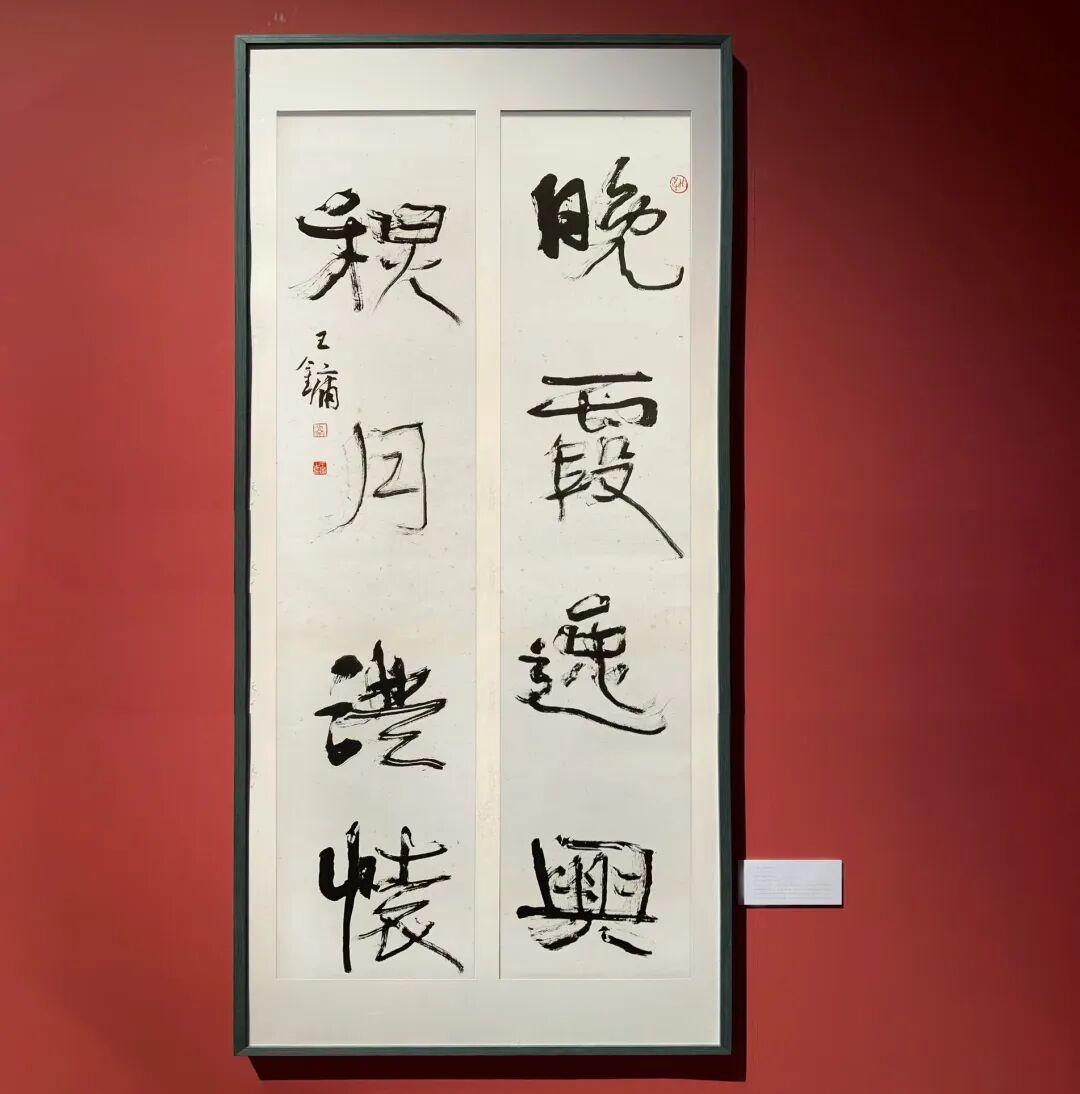 晚霞逸興
秋月澄懷
王鏞